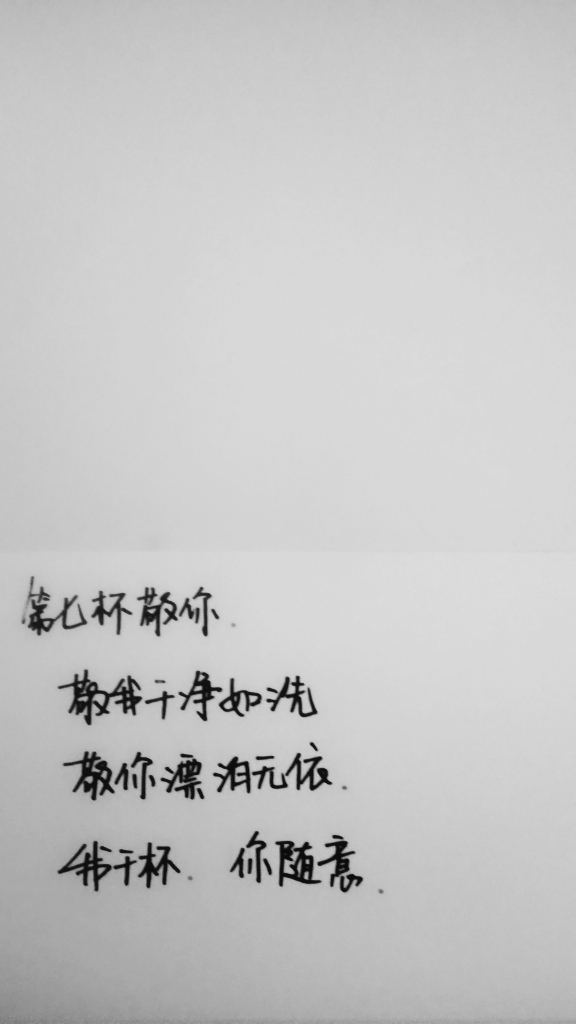 第七杯敬你.
敬我干净如洗
敬你漂泊无依.
我干杯. 你随意.